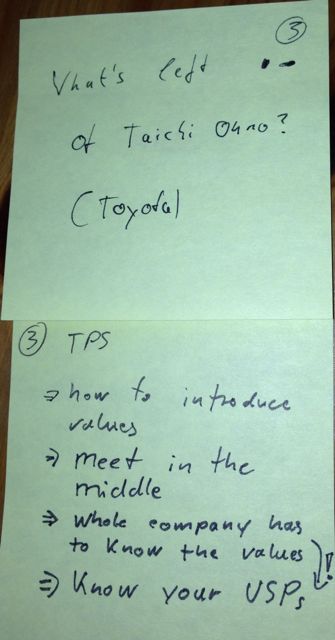 ③
What's left
of Taichi Ohno?
(Toyota)
③ TPS
⇒ how to introduce
values
⇒ meet in the
middle
⇒ whole company has
to know the values
!
⇒ Know your USPs